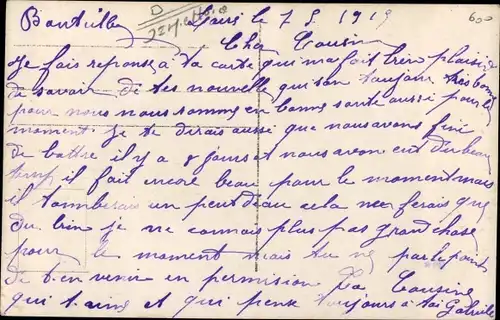 Bantville le 7 8 1919
Cher Cousin
Je fais reponse à ta carte qui ma fait bien plaisir
de savoir de tes nouvelle qui son toujour tres bonne
pour nous nous somme en bonne sante aussi pour le
moment je te dirais aussi que nous avons fini
de battre il y a 8 jours et nous avon eut du beau
temp il fait encore beau pour le moment mais
il tomberais un peut deau cela ne ferais que
du bien je ne connais plus pas grand chose
pour le moment mais tu ne parle point
de t'en venir en permission Ta Cousine
qui t'aime et qui pense toujours à toi Gabrielle